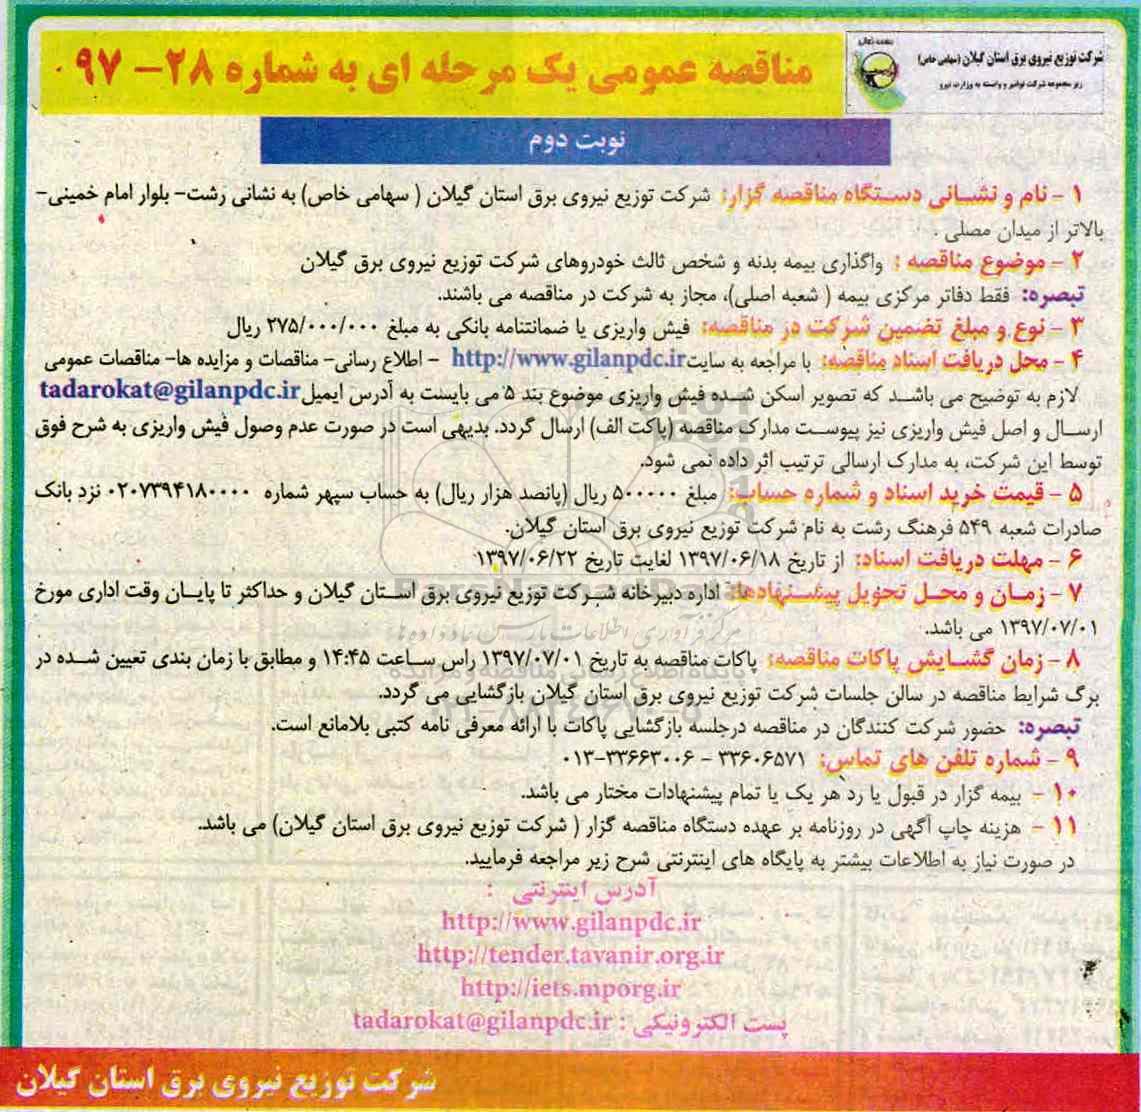 بسمه تعالی
شرکت توزیع نیروی برق استان گیلان (سهامی خاص)
زیر مجموعه شرکت توانیر و وابسته به وزارت نیرو
مناقصه عمومی یک مرحله ای به شماره ۲۸- ۹۷
نوبت دوم
۱ - نام و نشانی دستگاه مناقصه گزار: شرکت توزیع نیروی برق استان گیلان ( سهامی خاص) به نشانی رشت- بلوار امام خمینی-
بالاتر از میدان مصلی .
۲ - موضوع مناقصه : واگذاری بیمه بدنه و شخص ثالث خودروهای شرکت توزیع نیروی برق گیلان
تبصره: فقط دفاتر مرکزی بیمه ( شعبه اصلی)، مجاز به شرکت در مناقصه می باشند.
۳ - نوع و مبلغ تضمین شرکت در مناقصه: فیش واریزی یا ضمانتنامه بانکی به مبلغ ۲۷۵/۰۰۰/۰۰۰ ریال
۴ - محل دریافت اسناد مناقصه: با مراجعه به سایت http://www.gilanpdc.ir - اطلاع رسانی- مناقصات و مزایده ها- مناقصات عمومی
لازم به توضیح می باشد که تصویر اسکن شده فیش واریزی موضوع بند ۵ می بایست به آدرس ایمیل tadarokat@gilanpdc.ir
ارسال و اصل فیش واریزی نیز پیوست مدارک مناقصه (پاکت الف) ارسال گردد. بدیهی است در صورت عدم وصول فیش واریزی به شرح فوق
توسط این شرکت، به مدارک ارسالی ترتیب اثر داده نمی شود.
۵ - قیمت خرید اسناد و شماره حساب: مبلغ ۵۰۰۰۰۰ ریال (پانصد هزار ریال) به حساب سپهر شماره ۰۲۰۷۳۹۴۱۸۰۰۰۰ نزد بانک
صادرات شعبه ۵۴۹ فرهنگ رشت به نام شرکت توزیع نیروی برق استان گیلان.
۶ - مهلت دریافت اسناد: از تاریخ ۱۳۹۷/۰۶/۱۸ لغایت تاریخ ۱۳۹۷/۰۶/۲۲
۷ - زمان و محل تحویل پیشنهادها: اداره دبیرخانه شرکت توزیع نیروی برق استان گیلان و حداکثر تا پایان وقت اداری مورخ
۱۳۹۷/۰۷/۰۱ می باشد.
۸ - زمان گشایش پاکات مناقصه: پاکات مناقصه به تاریخ ۱۳۹۷/۰۷/۰۱ راس ساعت ۱۴:۴۵ و مطابق با زمان بندی تعیین شده در
برگ شرایط مناقصه در سالن جلسات شرکت توزیع نیروی برق استان گیلان بازگشایی می گردد.
تبصره: حضور شرکت کنندگان در مناقصه درجلسه بازگشایی پاکات با ارائه معرفی نامه کتبی بلامانع است.
۹ - شماره تلفن های تماس: ۳۳۶۰۶۵۷۱ - ۳۳۶۶۳۰۰۶-۰۱۳
۱۰ - بیمه گزار در قبول یا رد هر یک یا تمام پیشنهادات مختار می باشد.
۱۱ - هزینه چاپ آگهی در روزنامه بر عهده دستگاه مناقصه گزار ( شرکت توزیع نیروی برق استان گیلان) می باشد.
در صورت نیاز به اطلاعات بیشتر به پایگاه های اینترنتی شرح زیر مراجعه فرمایید.
آدرس اینترنتی :
http://www.gilanpdc.ir
http://tender.tavanir.org.ir
http://iets.mporg.ir
پست الکترونیکی : tadarokat@gilanpdc.ir
شرکت توزیع نیروی برق استان گیلان